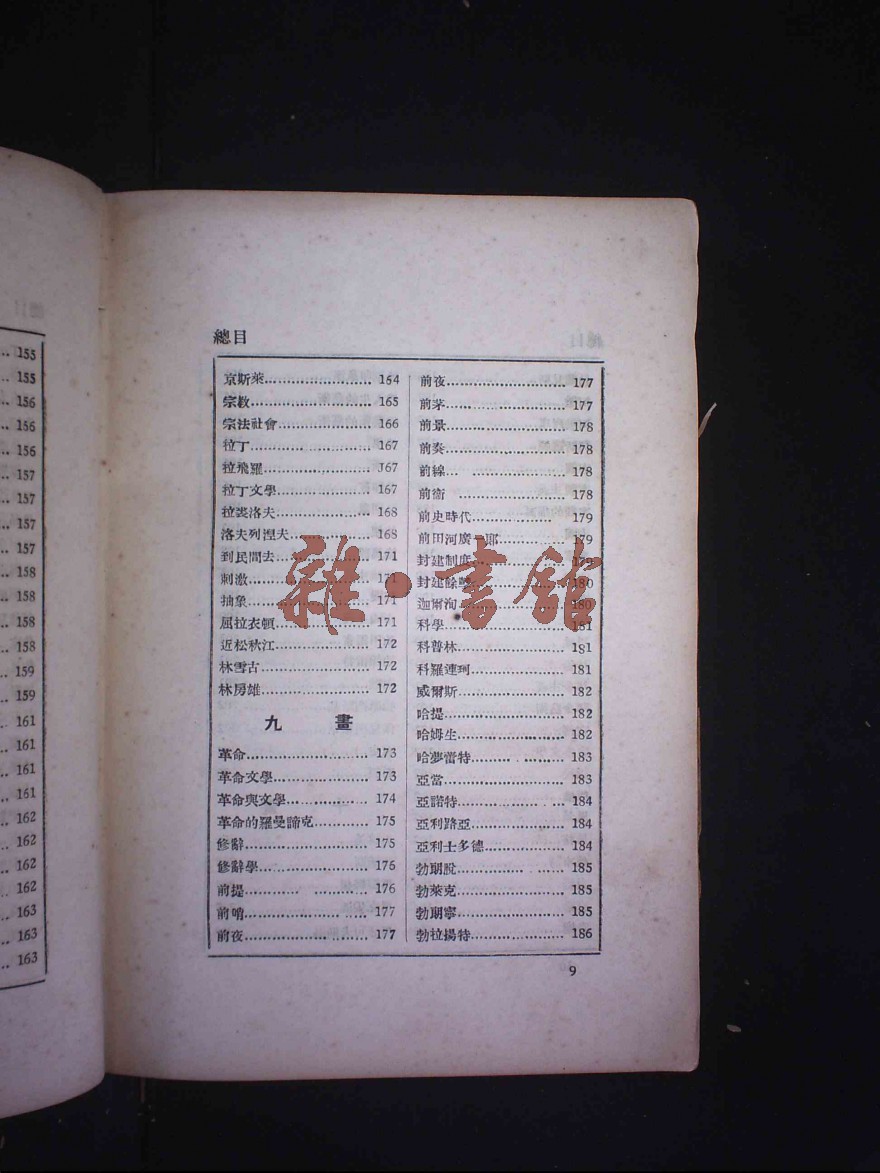 155
155
156
156
156
157
157
157
157
158
158
158
158
159
159
161
161
161
161
162
162
162
163
163
163
總目
京斯萊 164
宗教 165
宗法社會 166
拉丁 167
拉飛羅 167
拉丁文學 167
拉裘洛夫 168
洛夫列涅夫 168
到民間去 171
刺激 171
抽象 171
屈拉衣頓 171
近松秋江 172
林雪古 172
林房雄 172
九畫
革命 173
革命文學 173
革命與文學 174
革命的羅曼諦克 175
修辭 175
修辭學 176
前提 176
前哨 177
前夜 177
前夜 177
前茅 177
前景 178
前奏 178
前線 178
前衛 178
前史時代 179
前田河廣一郎 179
封建制度 179
封建餘孽 180
迦爾洵 180
科學 181
科普林 181
科羅連珂 181
威爾斯 182
哈提 182
哈姆生 182
哈夢雷特 183
亞當 183
亞諾特 184
亞利路亞 184
亞利士多德 184
勃朗說 185
勃萊克 185
勃朗寧 185
勃拉揚特 186
9
雜·書館